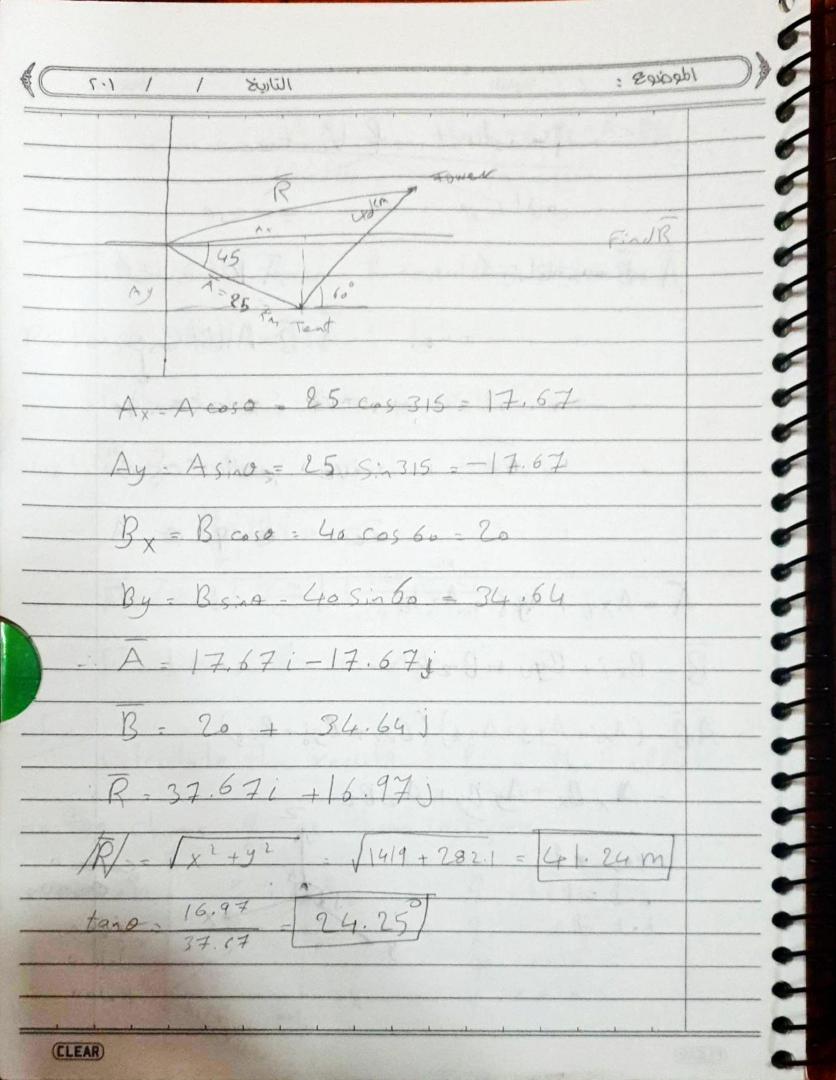 الموضوع :
التاريخ / / ٢٠١
R̅
Tower
40 km
Ax
Find R̅
45
Ay
A̅ = 25 km
60°
Tent
Ax = A cosθ = 25 cos 315 = 17.67
Ay = A sinθ = 25 sin 315 = -17.67
Bx = B cosθ = 40 cos 60 = 20
By = B sinθ = 40 sin 60 = 34.64
∴ A̅ = 17.67i - 17.67j
B̅ = 20 + 34.64j
R̅ = 37.67i + 16.97j
/R̅/ = √x² + y² = √1419 + 282.1 = 41.24 m
tanθ = 16.97 / 37.67 = 24.25°
CLEAR